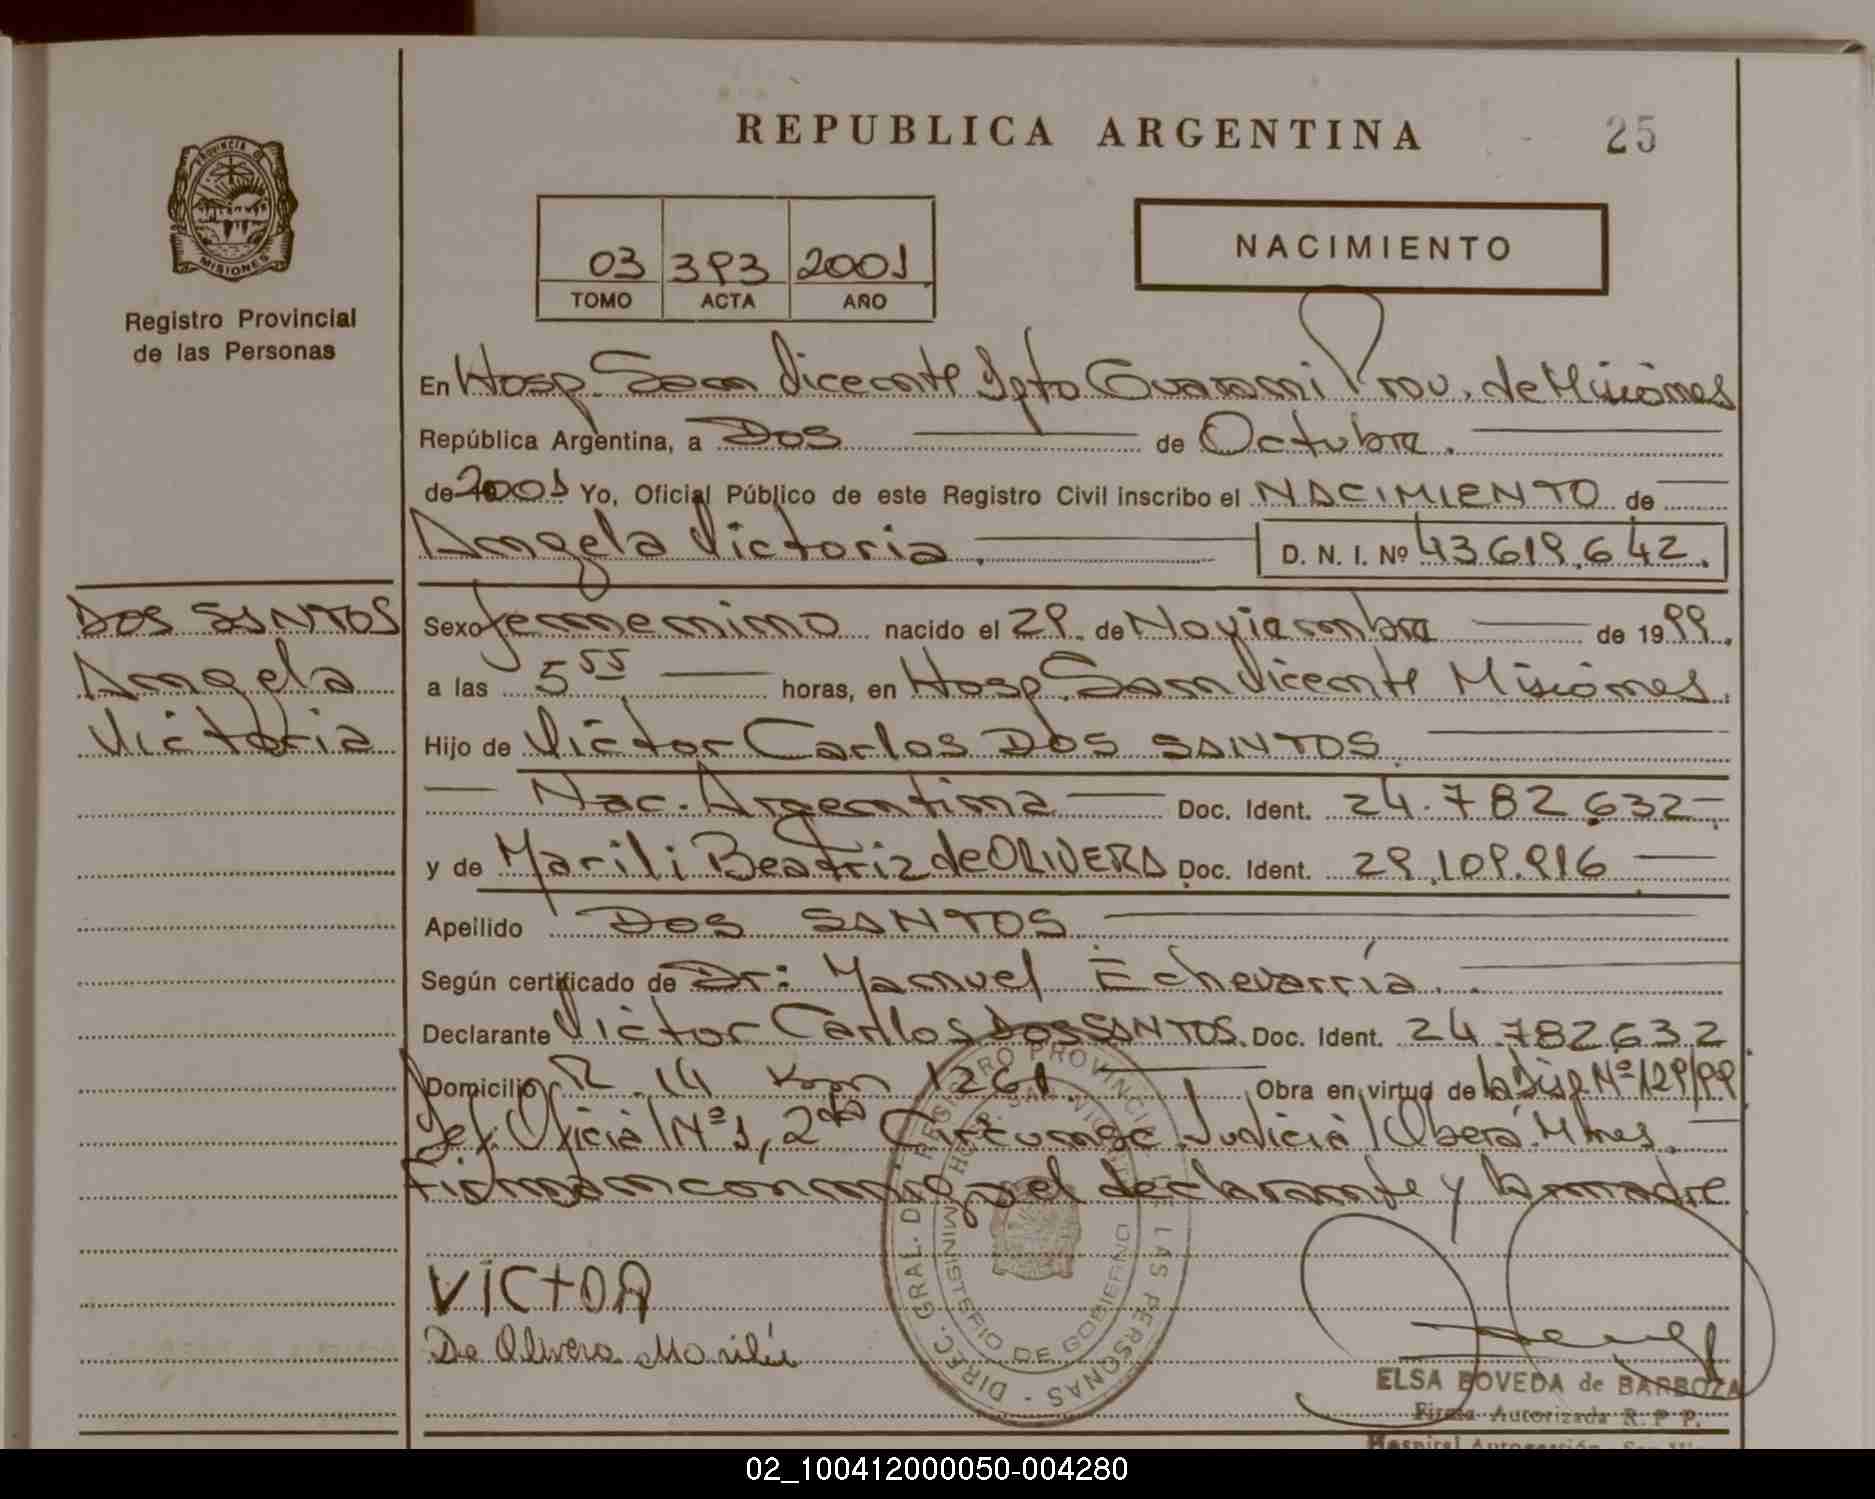 REPUBLICA ARGENTINA
25
PROVINCIA DE
MISIONES
Registro Provincial
de las Personas
03 393 2001
TOMO ACTA AÑO
NACIMIENTO
En Hosp. San Vicente Dpto Guarani Prov. de Misiones
República Argentina, a Dos de Octubre.
de 2001 Yo, Oficial Público de este Registro Civil inscribo el NACIMIENTO de
Angela Victoria. D. N. I. Nº 43.619.642.
DOS SANTOS
Angela
Victoria
Sexo femenino nacido el 29 de Noviembre de 1999.
a las 5 55 horas, en Hosp. San Vicente Misiones.
Hijo de Victor Carlos DOS SANTOS
Nac. Argentina Doc. Ident. 24.782.632
y de Marili Beatriz de OLIVERA Doc. Ident. 29.109.916
Apellido DOS SANTOS
Según certificado de Dr: Manuel Echevarría
Declarante Victor Carlos DOS SANTOS. Doc. Ident. 24.782632
Domicilio R. 14 Km 1261. Obra en virtud de la Disp Nº 129/99
Def. Oficial Nº 1, 2da Circunsc. Judicial Oberá. Mnes.
Firman conmigo el declarante y la madre
VICTOR
De Olivera Marili
DIREC. GRAL. DEL REGISTRO PROVINCIAL DE LAS PERSONAS
HOSP. SAN VICENTE
MINISTERIO DE GOBIERNO
ELSA BOVEDA de BARBOZA
Firma Autorizada R. P. P.
Hospital Autogestión
02_100412000050-004280